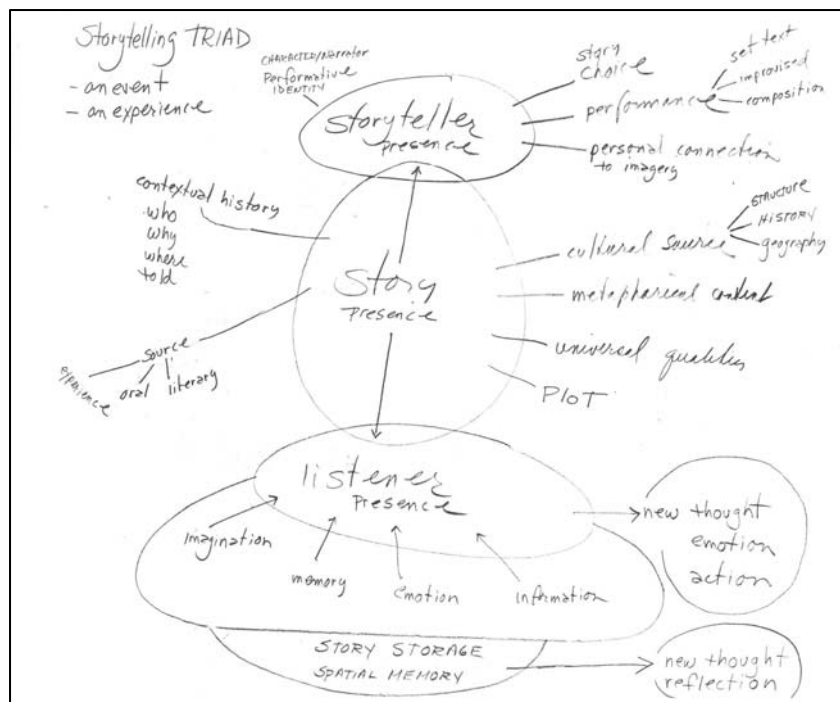 Storytelling TRIAD
- an event
- an experience
CHARACTER/Narrator
Performative
IDENTITY
storyteller
presence
story
choice
performance
set text
improvised
composition
personal connection
to imagery
contextual history
who
why
where
told
story
presence
cultural source
STRUCTURE
HISTORY
geography
metaphorical content
universal qualities
PLOT
source
experience
oral
literary
listener
presence
imagination
memory
emotion
information
new thought
emotion
action
STORY STORAGE
SPATIAL MEMORY
new thought
reflection